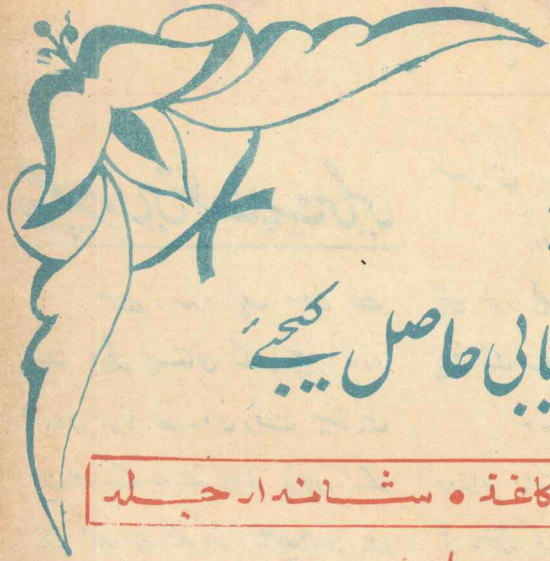 حاصل کیجئے
کاغذ • شاندار جلد